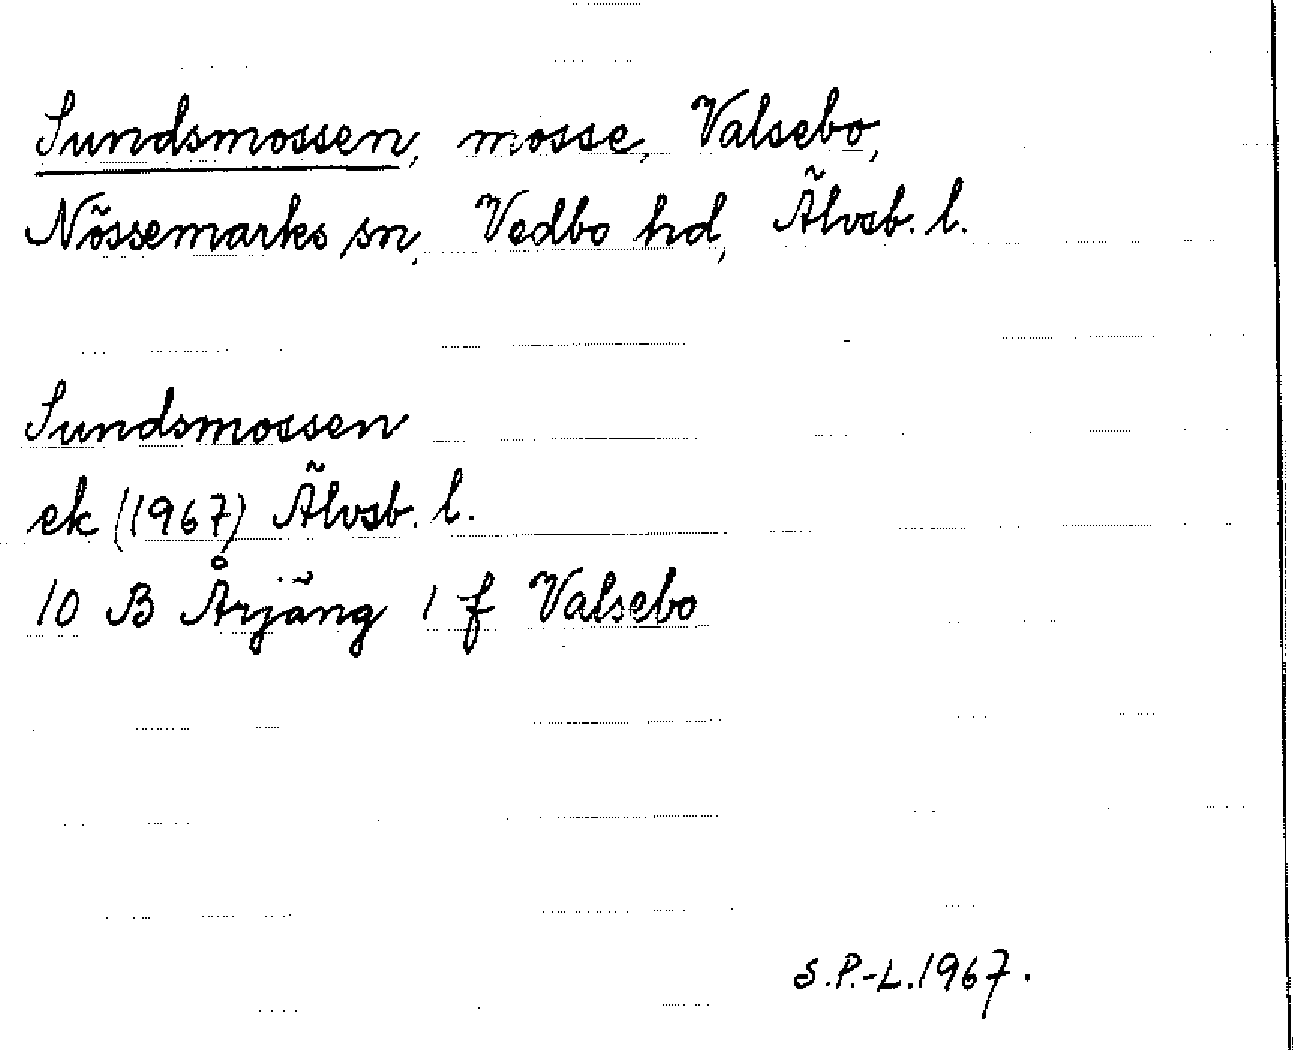 Sundsmossen, mosse, Valsebo,
Nössemarks sn, Vedbo hd, Älvsb. l.
Sundsmossen
ek (1967) Älvsb. l.
10 B Årjäng 1 f Valsebo
S.P.-L. 1967.